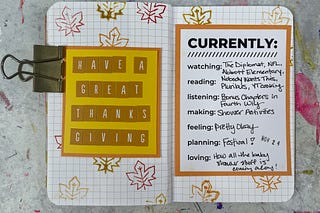 HAVE A
GREAT
THANKS
GIVING
CURRENTLY:
watching: The Diplomat, NFL,
Abbott Elementary,
Nobody Wants This,
reading: Pluribus, YT
listening: Bonus Chapters in
Fourth Wing
making: Shower Activities
feeling: Pretty Okay
planning: Festival!
NOV 24
loving: How all the baby
shower stuff is
coming along!